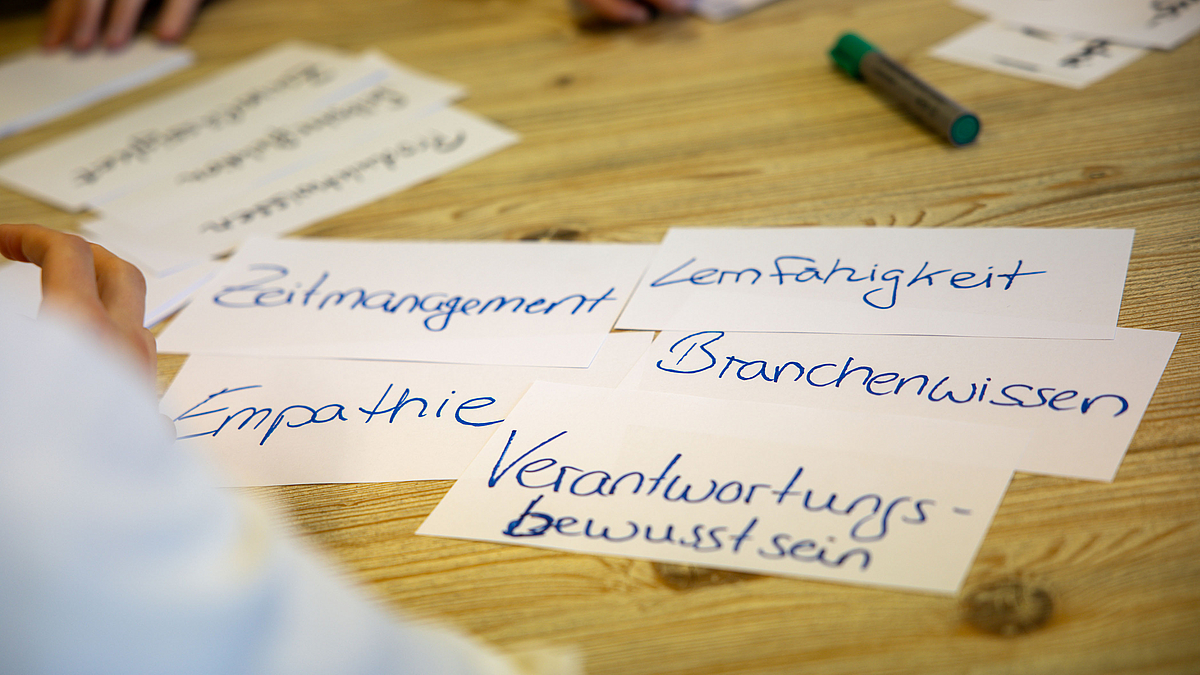 Zeitmanagement
Lernfähigkeit
Empathie
Branchenwissen
Verantwortungs-
bewusstsein
Produktwissen